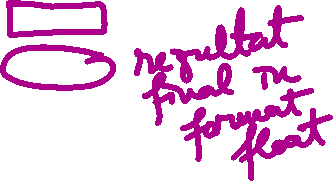 rezultat
final in
format
float